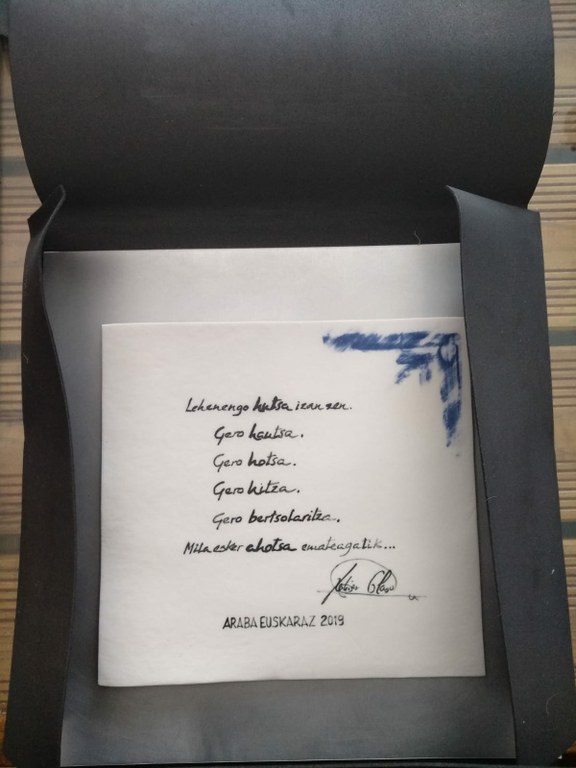 Lehenengo hutsa izan zen.
Gero hautsa.
Gero hotsa.
Gero hitza.
Gero bertsolaritza.
Mila esker ahotsa emateagatik...
Xabier
ARABA EUSKARAZ 2019